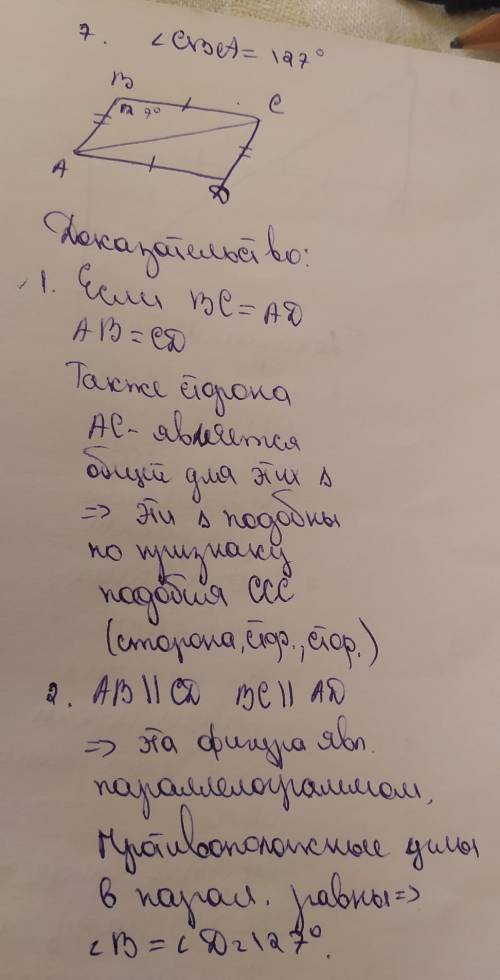 7. ∠CBA = 127°
B
C
A
D
Доказательство:
1. Если BC = AD
AB = CD
Также сторона
AC - является
общей для этих Δ
=> эти Δ подобны
по признаку
подобия ССС
(сторона, стор., стор.)
2. AB || CD BC || AD
=> эта фигура явл.
параллелограммом,
Противоположные углы
в парал. равны =>
∠B = ∠D = 127°.